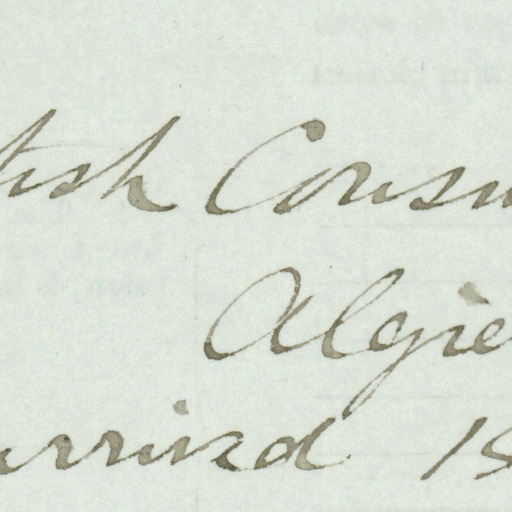 tish Consu
Algie
arrived 18